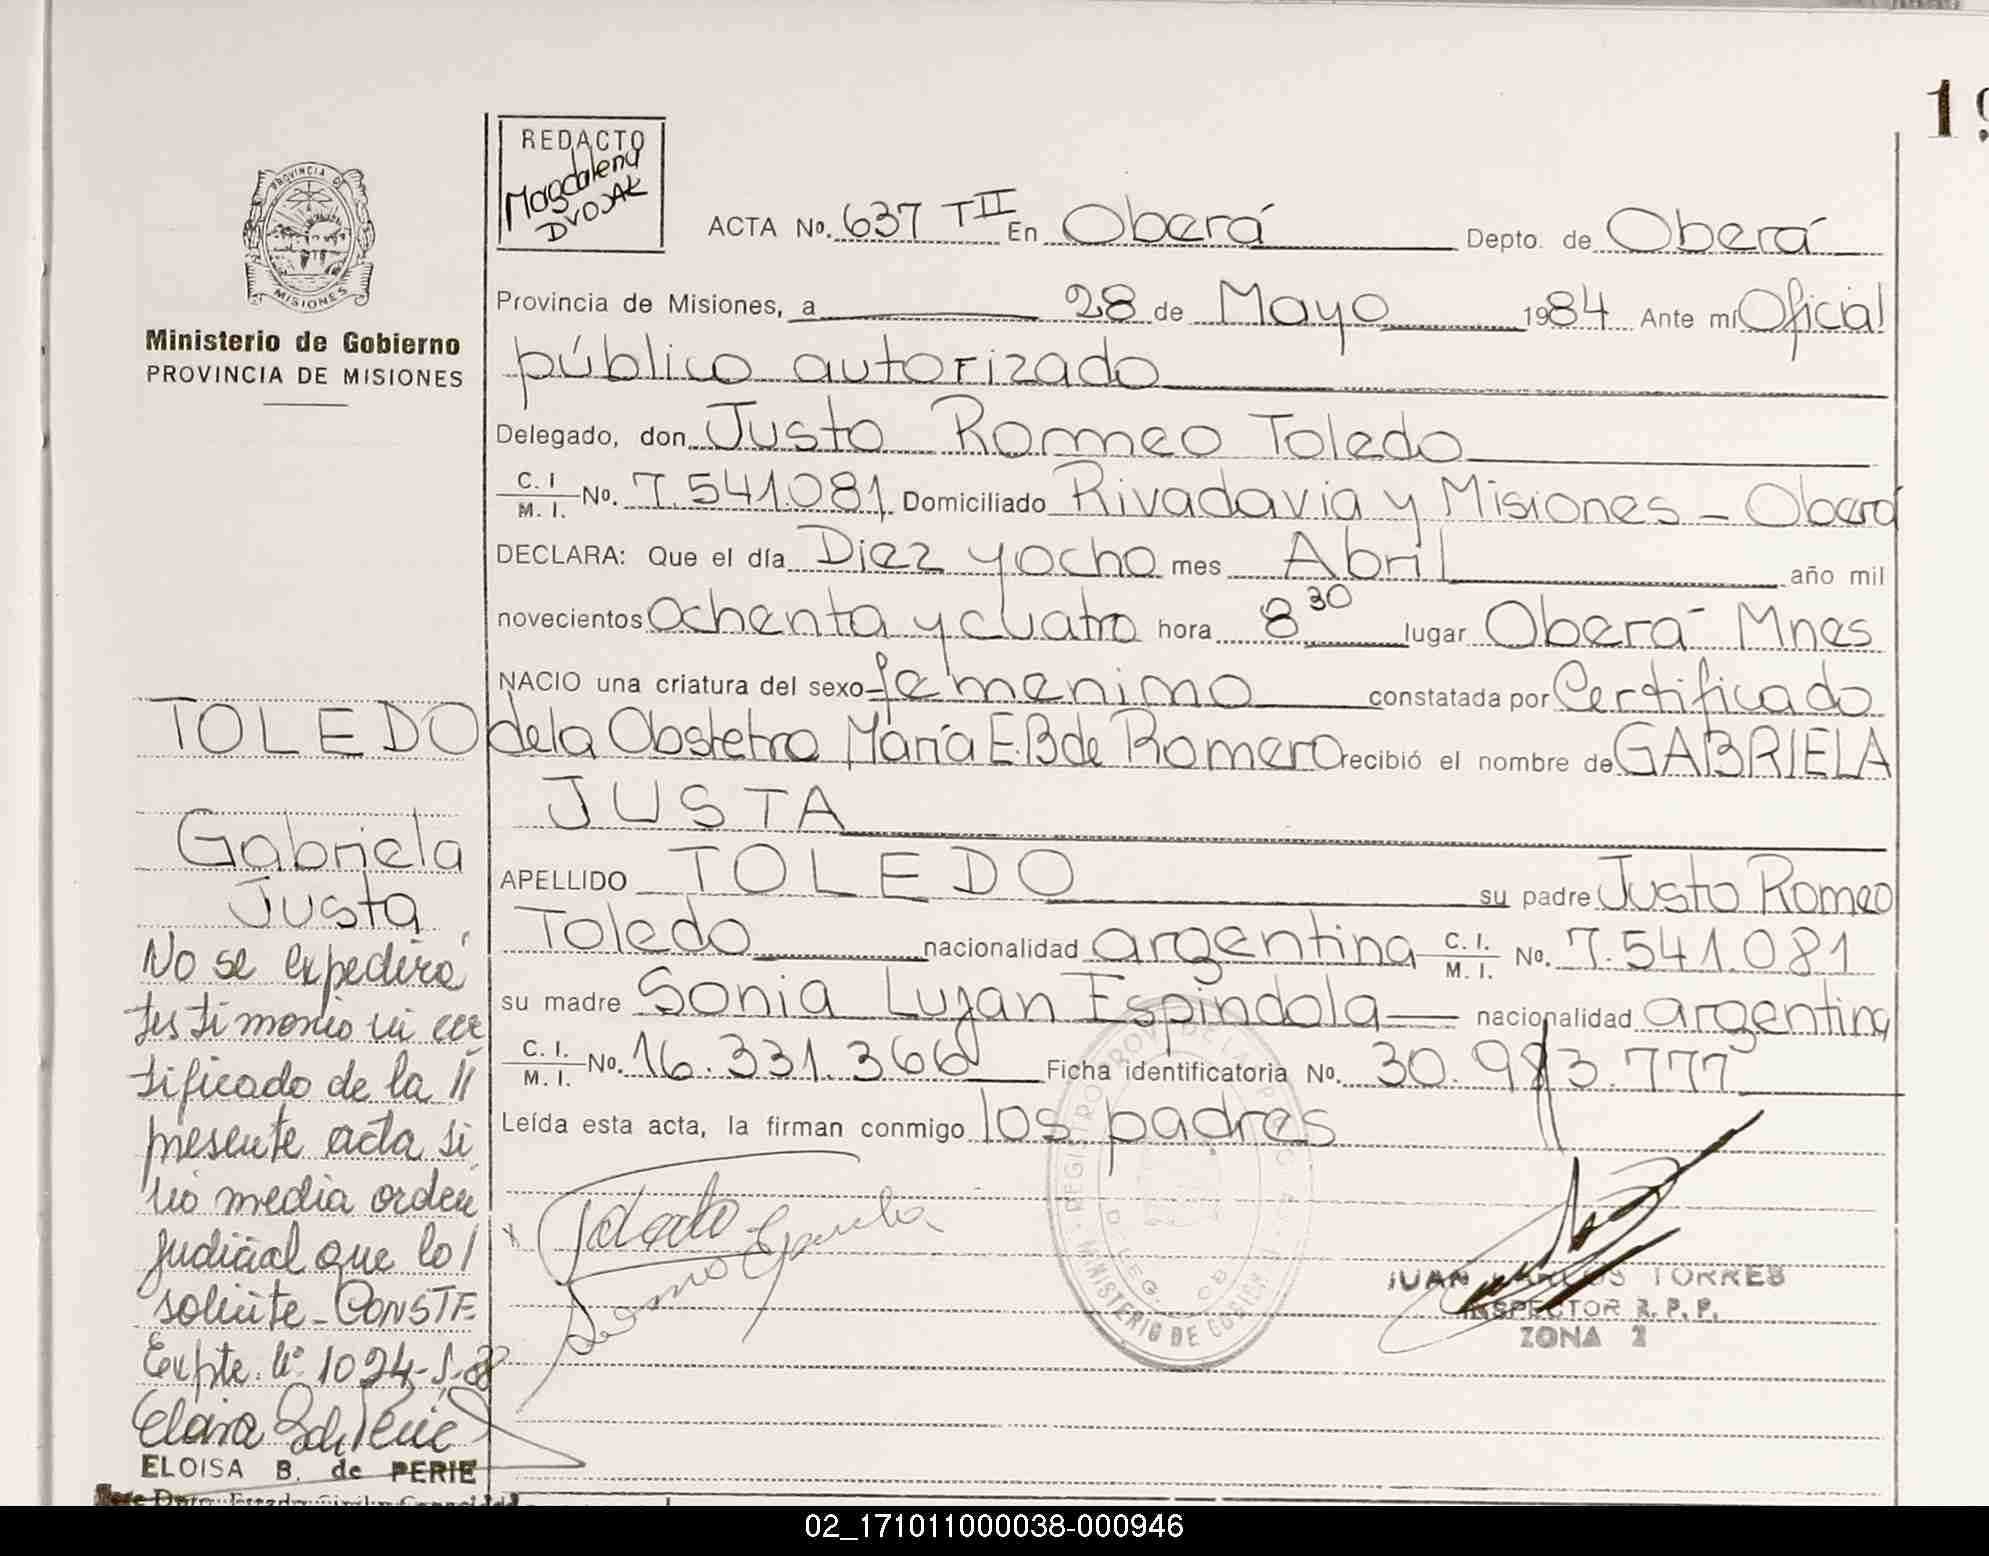 19
REDACTO
Magdalena
DVOJAK
PROVINCIA D
MISIONES
Ministerio de Gobierno
PROVINCIA DE MISIONES
ACTA No. 637 TII En Oberá Depto. de Oberá
Provincia de Misiones, a 28 de Mayo 1984 Ante mí Oficial
público autorizado
Delegado, don Justo Romeo Toledo
C. I. M. I. No. 7.541.081 Domiciliado Rivadavia y Misiones - Oberá
DECLARA: Que el día Diez y ocho mes Abril año mil
novecientos Ochenta y cuatro hora 8 30 lugar Oberá Mnes
NACIO una criatura del sexo femenino constatada por Certificado
de la Obstetra María E. B de Romero recibió el nombre de GABRIELA
JUSTA
APELLIDO TOLEDO su padre Justo Romeo
Toledo nacionalidad argentina C. I. M. I. No. 7.541.081
su madre Sonia Lujan Espindola nacionalidad argentina
C. I. M. I. No. 16.331.366 Ficha identificatoria No. 30.983.777
Leída esta acta, la firman conmigo los padres
TOLEDO
Gabriela
Justa
No se expedirá
testimonio ni cer
tificado de la //
presente acta si
no media orden
judicial que lo /
solicite - CONSTE
Expte. Nº 1024-S-88
ELOISA B. de PERIE
Toledo
REGISTRO PROV. DE LAS P
MINISTERIO DE GOBIER
DELEG. OB
JUAN CARLOS TORRES
INSPECTOR R. P. P.
ZONA 2
02_171011000038-000946